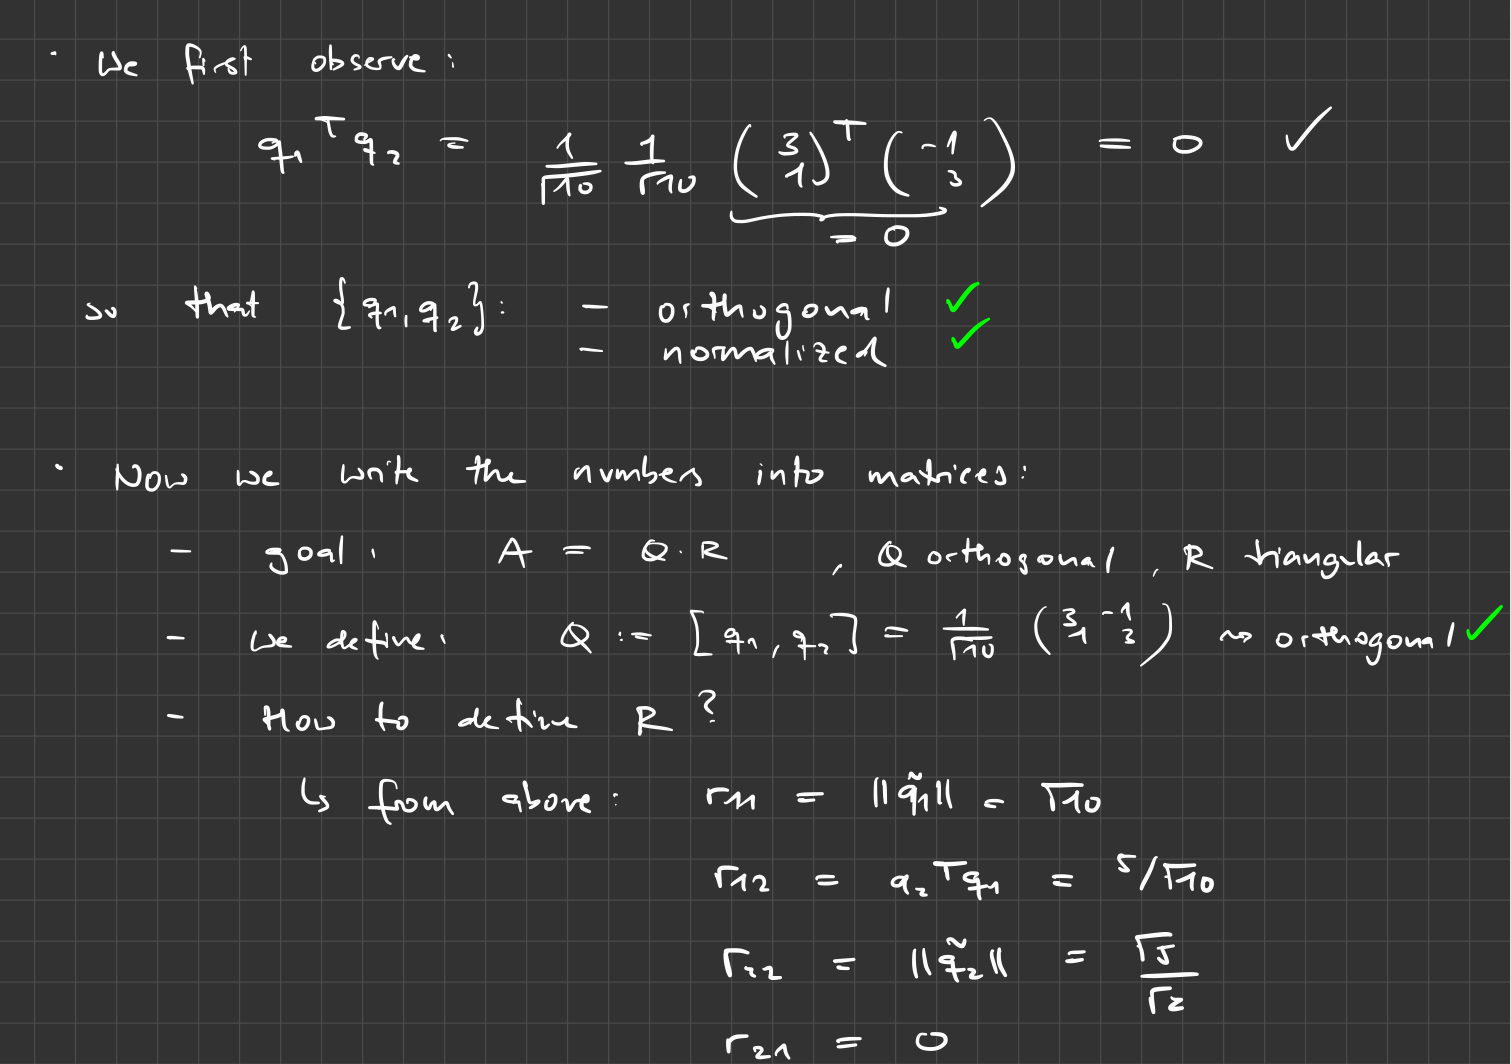 · We first observe:
q₁ᵀ q₂ = 1/√10 1/√10 (3 1)ᵀ (-1 3) = 0 ✓
= 0
so that {q₁, q₂}: – orthogonal ✓
– normalized ✓
· Now we write the numbers into matrices:
– goal: A = Q · R , Q orthogonal, R triangular
– we define: Q := [q₁, q₂] = 1/√10 (3 -1 1 3) ⇝ orthogonal ✓
– How to define R?
↳ from above: r₁₁ = ||q̃₁|| = √10
r₁₂ = a₂ᵀq₁ = 5/√10
r₂₂ = ||q̃₂|| = √5/√2
r₂₁ = 0